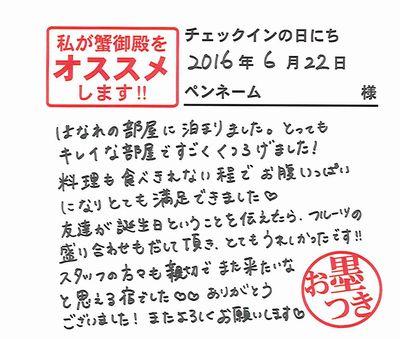 私が蟹御殿を
オススメ
します!!
チェックインの日にち
2016年 6月22日
ペンネーム 様
はなれの部屋に泊まりました。とっても
キレイな部屋ですごくくつろげました!
料理も食べきれない程でお腹いっぱい
になりとても満足できました♡
友達が誕生日ということを伝えたら、フルーツの
盛り合わせもだして頂き、とてもうれしかったです!!
スタッフの方々も親切でまた来たいな
と思える宿でした♡♡ ありがとう
ございました! またよろしくお願いします♡
お墨つき